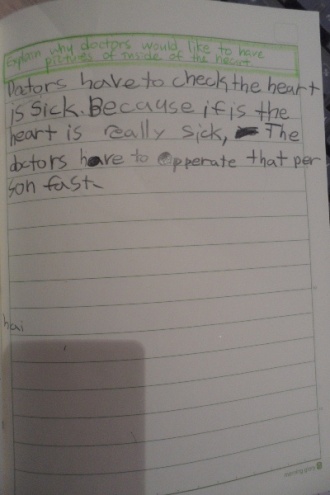 Explain why doctors would like to have
pictures of inside of the heart
Doctors have to check the heart
is sick. Because if is the
heart is really sick, The
doctors have to opperate that per
son fast.
hai